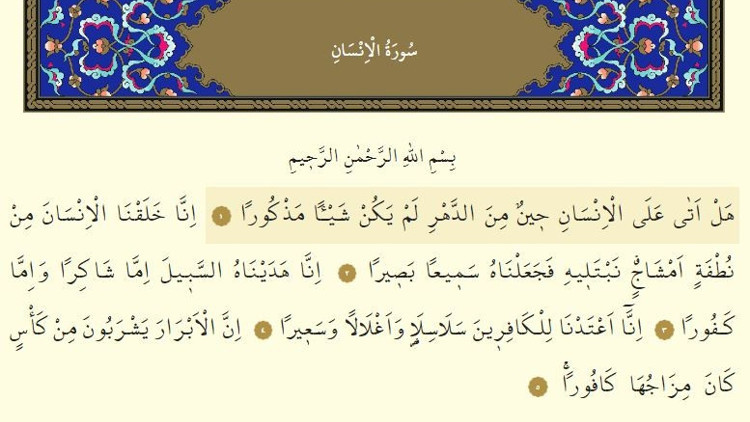 سُورَةُ الْاِنْسَانِ
بِسْمِ اللهِ الرَّحْمٰنِ الرَّحٖيمِ
هَلْ اَتٰى عَلَى الْاِنْسَانِ حٖينٌ مِنَ الدَّهْرِ لَمْ يَكُنْ شَيْـًٔا مَذْكُورًا ﴿١﴾ اِنَّا خَلَقْنَا الْاِنْسَانَ مِنْ
نُطْفَةٍ اَمْشَاجٍۗ نَبْتَلٖيهِ فَجَعَلْنَاهُ سَمٖيعًا بَصٖيرًا ﴿٢﴾ اِنَّا هَدَيْنَاهُ السَّبٖيلَ اِمَّا شَاكِرًا وَاِمَّا
كَفُورًا ﴿٣﴾ اِنَّٓا اَعْتَدْنَا لِلْكَافِرٖينَ سَلَاسِلَا۬ وَاَغْلَالًا وَسَعٖيرًا ﴿٤﴾ اِنَّ الْاَبْرَارَ يَشْرَبُونَ مِنْ كَأْسٍ
كَانَ مِزَاجُهَا كَافُورًاۚ ﴿٥﴾